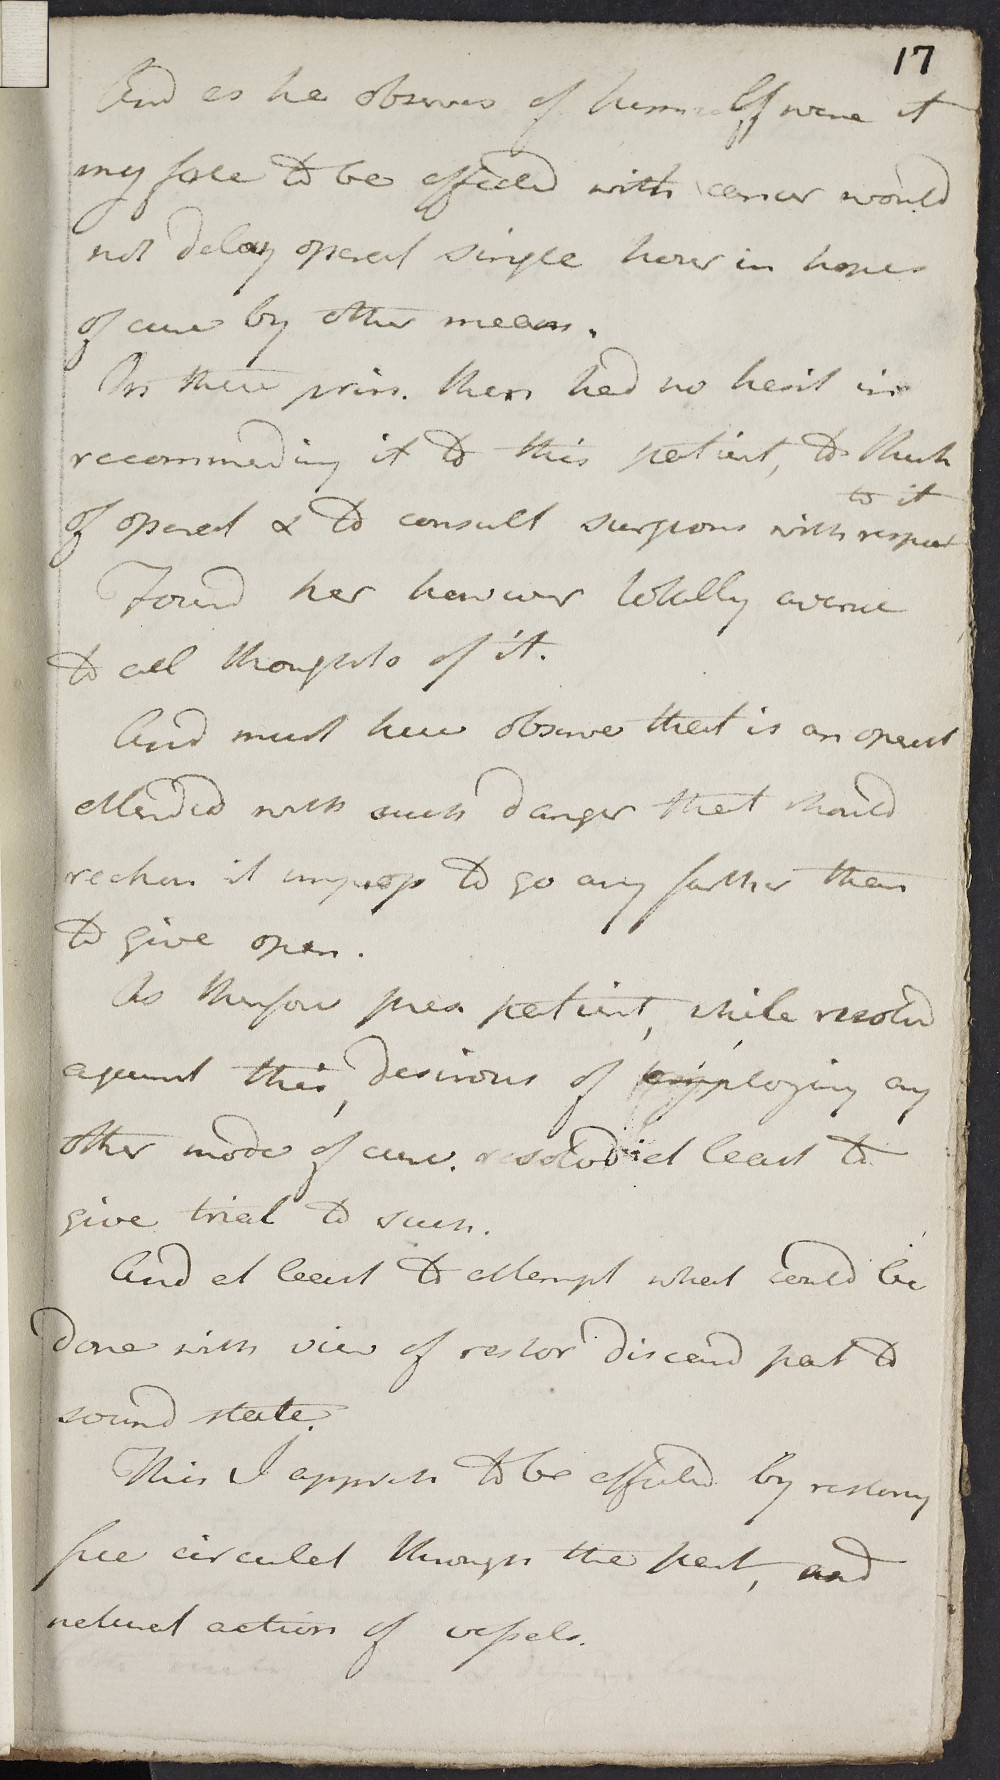 17
And as he observes of himself were it
my fate to be affected with cancer would
not delay operat single hour in hopes
of cure by other means.
On these prin. then had no hesit in
recommending it to this patient, to think
of operat & to consult surgeons with respect
to it
Found her however totally averse
to all thoughts of it.
And must here observe that is an operat
attended with such danger that should
reckon it improp to go any farther than
to give opin.
As therefore pres patient, while resolved
against this, desirous of employing any
other mode of cure. resolved at least to
give trial to such.
And at least to attempt what could be
done with view of restor diseasd part to
sound state.
This I appreh to be effected by restoring
free circulat through the part, and
natural action of vessels.